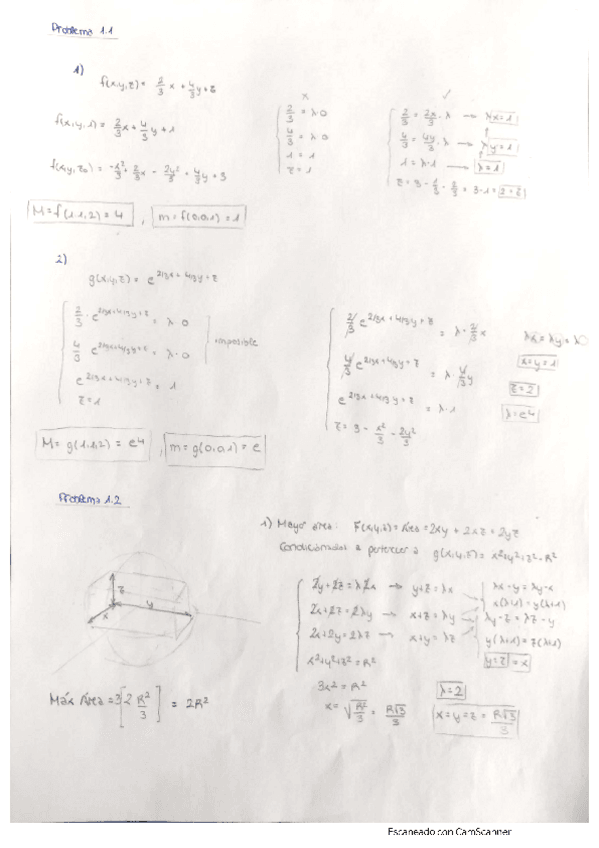 Problema 1.1
1)
f(x,y,z) = 2/3 x + 4/3 y + z
f(x,y,1) = 2/3 x + 4/3 y + 1
f(x,y,z₀) = -x²/3 + 2/3 x - 2y²/3 + 4/3 y + 3
M = f(1,1,2) = 4 , m = f(0,0,1) = 1
x
2/3 = λ·0
4/3 = λ·0
1 = λ·1
z = 1
✓
2/3 = 2x/3 · λ → λx = 1
4/3 = 4y/3 · λ → λy = 1
1 = λ·1 → λ = 1
2)
g(x,y,z) = e^(2/3x + 4/3y + z)
2/3 · e^(2/3x + 4/3y + z) = λ·0
4/3 e^(2/3x + 4/3y + z) = λ·0
imposible
e^(2/3x + 4/3y + z) = 1
z = 1
M = g(1,1,2) = e⁴ , m = g(0,0,1) = e
2/3 e^(2/3x + 4/3y + z) = λ · 2/3 x
4/3 e^(2/3x + 4/3y + z) = λ · 4/3 y
e^(2/3x + 4/3y + z) = λ·1
z = 3 - x²/3 - 2y²/3
x = y = 1
z = 2
λ = e⁴
Problema 1.2
1) Mayor área: F(x,y,z) = Área = 2xy + 2xz + 2yz
Condicionados a pertenecer a g(x,y,z) = x²+y²+z² = R²
z
x
y
2y + 2z = λ2x → y+z = λx
2x + 2z = 2λy → x+z = λy
2x + 2y = 2λz → x+y = λz
x²+y²+z² = R²
λx - y = λy - x
x(λ+1) = y(λ+1)
λy - z = λz - y
y(λ+1) = z(λ+1)
y = z = x
3x² = R²
λ = 2
x = √(R²/3) = R√3/3
x = y = z = R√3/3
Máx Área = 3[2 R²/3] = 2R²
Escaneado con CamScanner